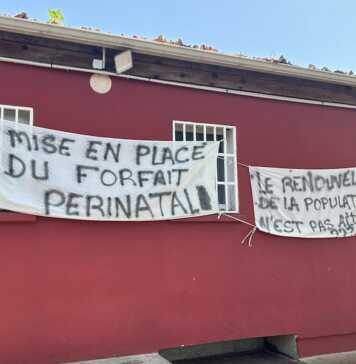 MISE EN PLACE
DU FORFAIT
PERINATAL
LE RENOUVEL
DE LA POPULAT
N'EST PAS